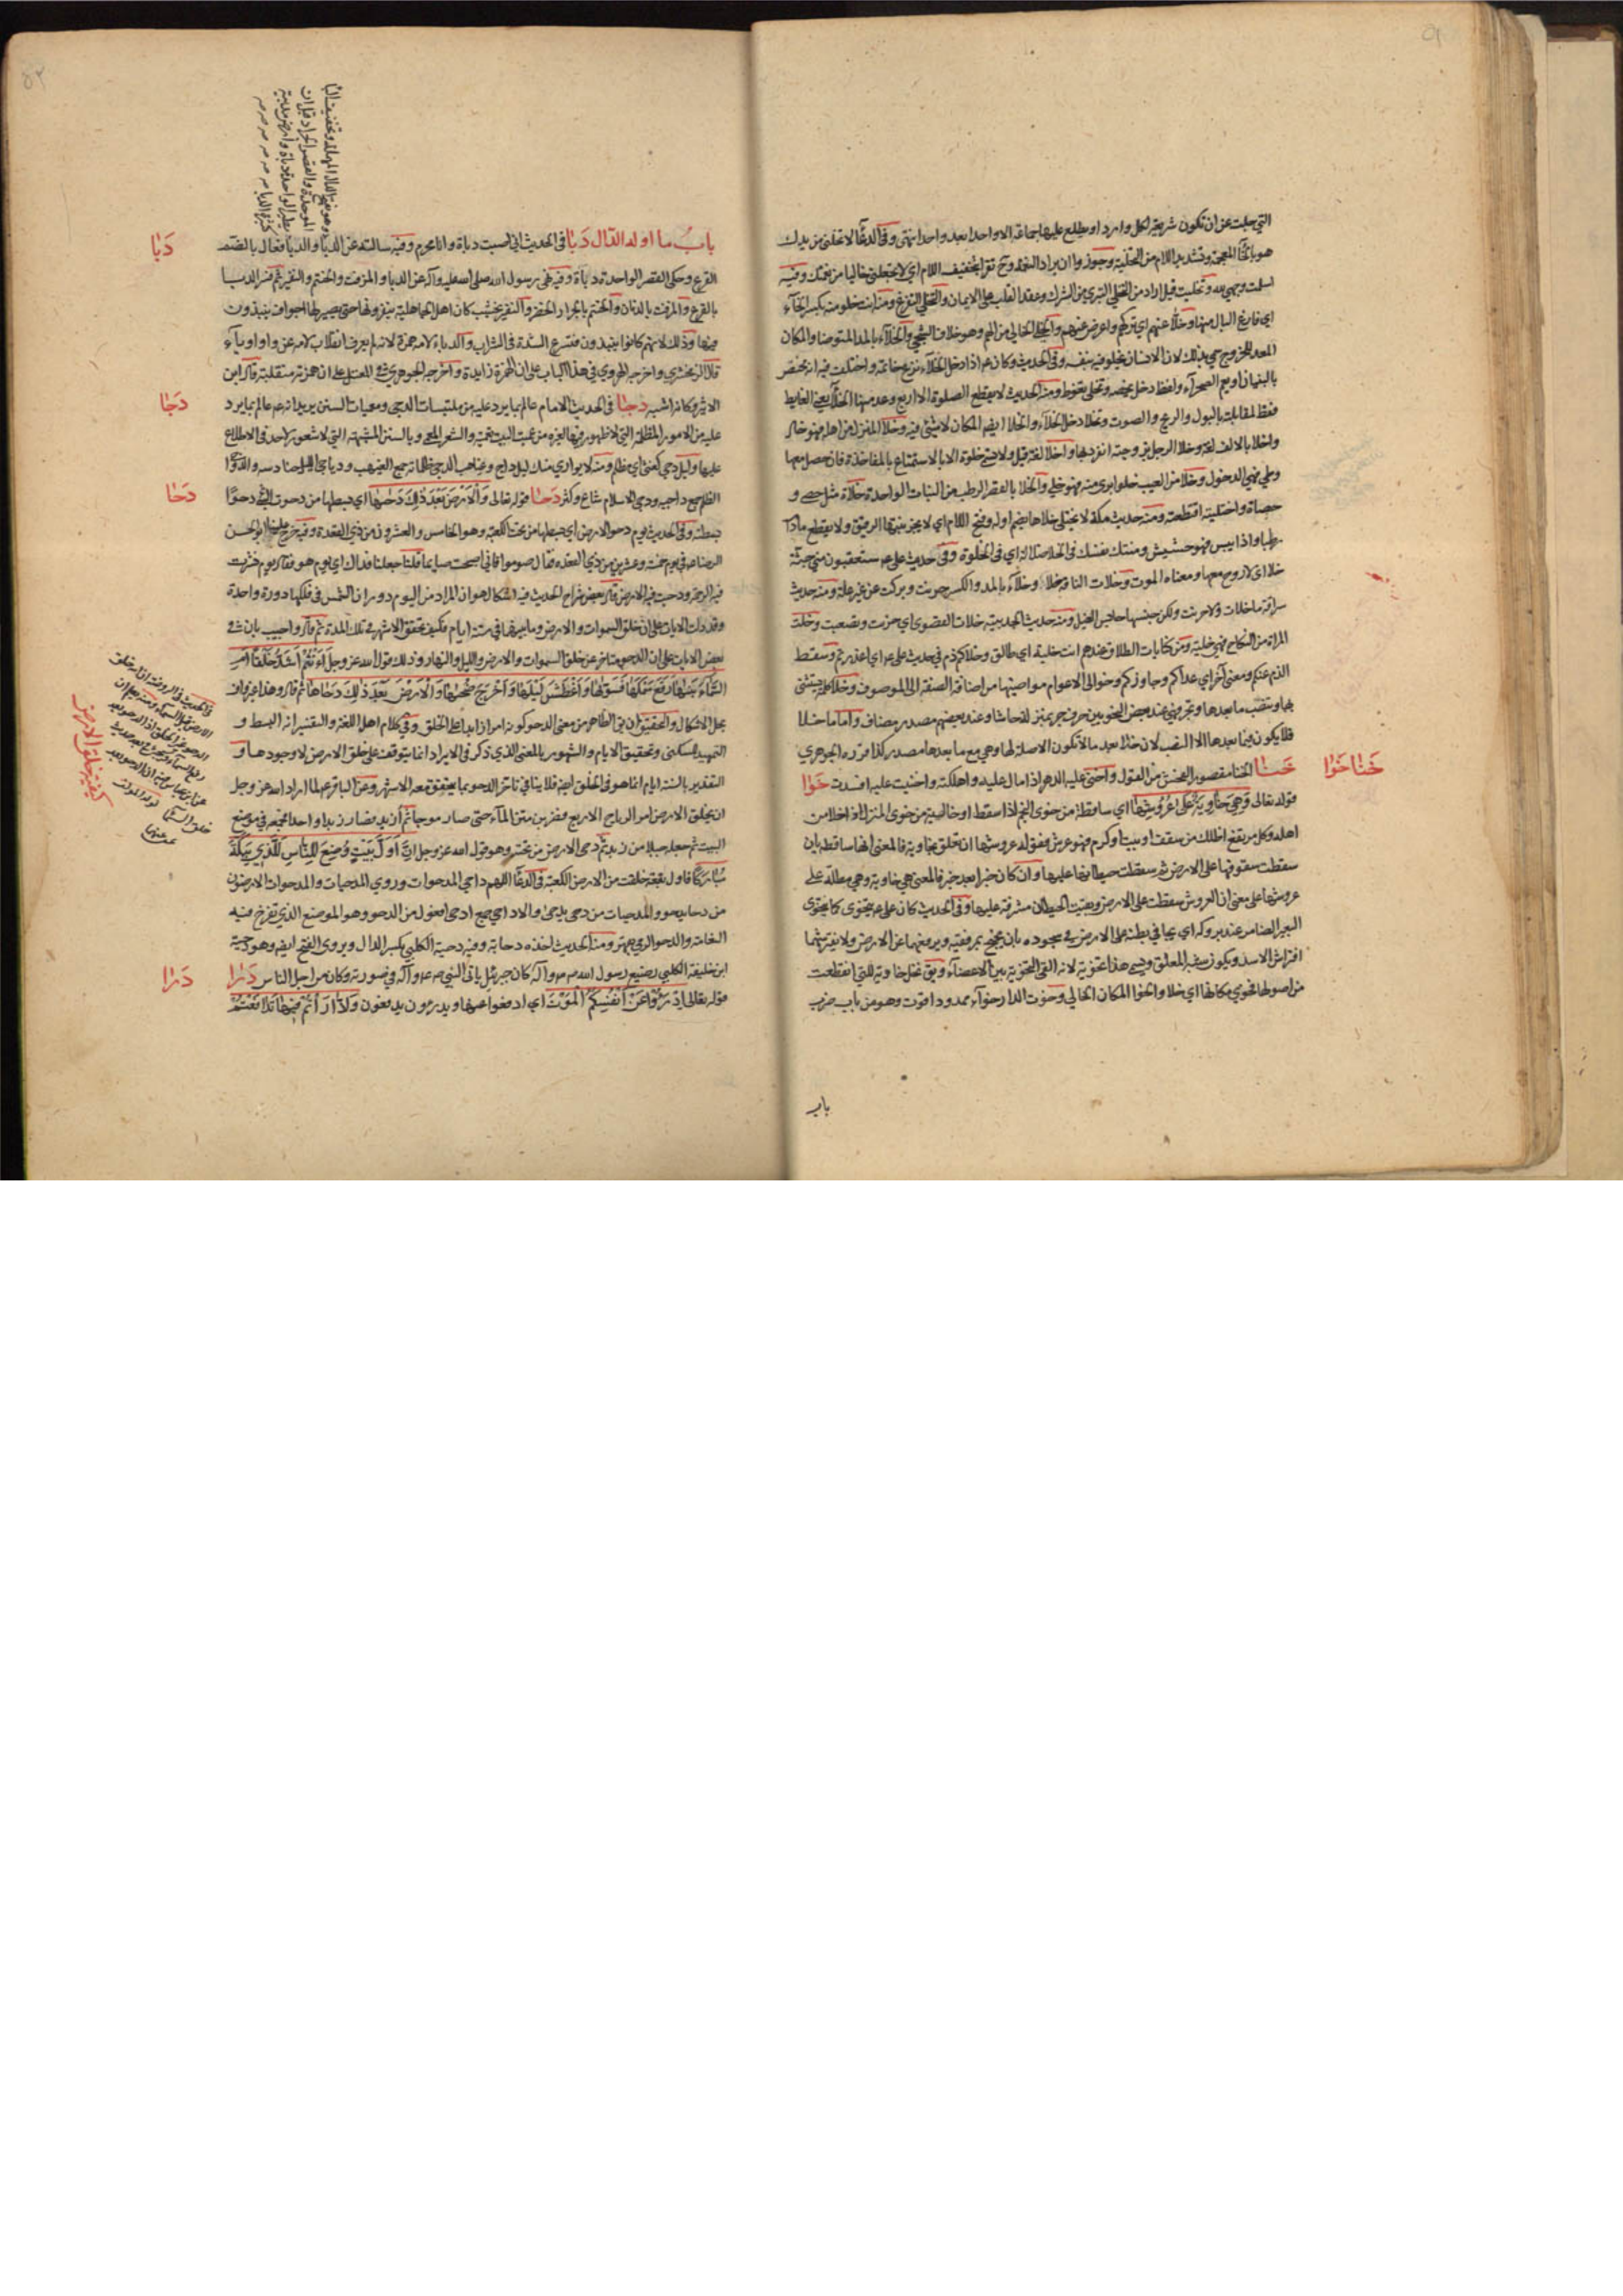 التي جلت عن ان تكون شريعة لكل وارد او يطلع عليها جماعة الا واحدا بعد واحد انتهى وفي الدعاء لا تخلني من يدك
هو بالخاء المعجمة وتشديد اللام من التخلية وجوز وا ان يراد النعمة وح تقرأ بتخفيف اللام اي لا تجعلني خاليا من نعمتك وفيه
اسلمت وجهي لله وتخليت قيل اراد من التخلي التبري من الشرك وعقد القلب على الايمان والتخلي التفرغ ومنه انت خلو منه بكسر الخاء
اي فارغ البال منها وخلا عنهم اي تركهم واعرض عنهم والخلي الخالي من الهم وهو خلاف الشجي والخلاء بالمد المتوضأ والمكان
المعد للخروج سمي بذلك لان الانسان يخلو فيه بنفسه وفي الحديث وكان ع اذا دخل الخلاء نزع خاتمه واختلف فيه انه يختص
بالبنيان او يعم الصحراء ولفظ دخل يخصه وتخلى تغوط ومنه الحديث لا يقطع الصلوة الا اربع وعد منها الخلا يعني الغايط
فقط لمقابلته بالبول والريح والصوت وتخلا دخل الخلاء والخلا ايضم المكان لا شيء فيه وخلا المنزل من اهله فهو خال
واخلا بالالف لغة وخلا الرجل بزوجته انفرد بها واخلا لغة قيل ولا تسمى خلوة الا بالاستمتاع بالمفاخذة فان حصل معها
وطي فهي الدخول وخلا من العيب خلوا بري منه فهو خلي والخلا بالقصر الرطب من النبات الواحدة خلاة مثل حصى و
حصاة واختليته اقتطعته ومنه حديث مكة لا يختلى خلاها بضم اوله وفتح اللام اي لا يجز نبتها الرقيق ولا يقطع مادام
رطبا واذا يبس فهو حشيش ومنتك نفسك في الخلا ضلالة اي في الخلوة وفي حديث علي ع ستعقبون مني جثة
خلاء اي لا روح معها ومعناه الموت وخلات الناقة خلاء وخلاء بالمد والكسر حرنت وبركت عن غير علة ومنه حديث
سراقة ما خلات ولا حرنت ولكن حبسها حابس الفيل ومنه حديث الحديبية خلات القصوى اي حرنت وتصعبت وخلت
المراة من النكاح فهي خلية ومن كنايات الطلاق عندهم انت خلية اي طالق وخلاكم ذم في حديث علي ع اي اعذرتم وسقط
الذم عنكم ومعنى اخر اي عداكم وجاوزكم وخوالي الاعوام مواضيها من اضافة الصفة الى الموصوف وخلا كلمة يستثنى
بها وتنصب ما بعدها وتجر فهي عند بعض النحويين حرف جر بمنزلة حاشا وعند بعضهم مصدر مضاف واما ما خلا
فلا يكون فيما بعدها الا النصب لان خلا بعد ما لا تكون الا صلة لها وهي مع ما بعدها مصدر كذا قرره الجوهري
خَنَا خَوَا
خَنَا الخنا مقصور الفحش من القول واخنى عليه الدهر اذا مال عليه واهلكه واخنيت عليه افسدت خَوَا
قوله تعالى وهي خاوية على عروشها اي ساقطة من خوى النجم اذا سقط او خالية من خوى المنزل اذا خلا من
اهله وكل مرتفع اظلك من سقف او بيت او كرم فهو عرش فقوله على عروشها ان تعلق بخاوية فالمعنى انها ساقطة بان
سقطت سقوفها على الارض ثم سقطت حيطانها عليها وان كان خبرا بعد خبر فالمعنى هي خاوية وهي مطلة على
عروشها على معنى ان العروش سقطت على الارض وبقيت الحيطان مشرفة عليها وفي الحديث كان علي ع يتخوى كما يتخوى
البعير الضامر عند بروكه اي يجافي بطنه على الارض في سجوده بان يجنح بمرفقيه ويرفعهما عن الارض ولا يفترشهما
افتراش الاسد ويكون شبه المعلق ويسمى هذا تخوية لانه القى التخوية بين الاعضاء ويق نخل خاوية للتي انقطعت
من اصولها فخوي مكانها اي خلا والخوا المكان الخالي وخوت الدار خواء ممدودا اقوت وهو من باب ضرب
باب
وهو بفتح الدال المهملة وتخفيف الباء
الموحدة والقصر الجراد قبل ان
يطير الواحدة دباة وارض مدبية
كثيرة الدبا
دَبَا
باب ما اوله الدال دَبَا في الحديث اني اصبت دباة وانا محرم وفيه سالته عن الدبا والدبا فعال بالضم
القرع وحكي القصر الواحدة دباة وفيه نهى رسول الله صلى الله عليه وآله عن الدبا والمزفت والحنتم والنقير ثم فسر الدبا
بالقرع والمزفت بالدنان والحنتم بالجرار الخضر والنقير بخشب كان اهل الجاهلية ينقرونها حتى يصير لها اجواف ينبذون
فيها وذلك لانهم كانوا ينبذون فتسرع الشدة في الشراب والدباء لامه همزة لانه لم يعرف انقلاب لامه عن واو او ياء
قاله الزمخشري واخرجه الهروي في هذا الباب على ان الهمزة زايدة واخرجه الجوهري في المعتل على ان همزته منقلبة قال ابن
دَجَا
الاثير وكانه اشبه دَجَا في الحديث الامام عالم بما يرد عليه من ملتبسات الدجى ومعميات السنن يريد انه ع عالم بما يرد
عليه من الامور المظلمة التي لا ظهور فيها لغيره من عميت البيت تعمية والشعر المعمى وبالسنن المشتبهة التي لا شعور لاحد في الاطلاع
عليها وليل دجي كغني اي مظلم ومنه لا يواري منك ليل داج وغياهب الدجى ظلماته جمع الغيهب ودياجي الليل حنادسه
دَحَا
الظلم جمع داجية ودجى الاسلام شاع وكثر دَحَا قوله تعالى والارض بعد ذلك دحيها اي بسطها من دحوت الشيء دحوا
بسطته وفي الحديث يوم دحو الارض اي بسطها من تحت الكعبة وهو الخامس والعشرون من ذي القعدة وفيه خرج علينا ابو الحسن
الرضا ع في يوم خمسة وعشرين من ذي القعدة فقال صوموا فاني اصبحت صايما قلنا جعلنا فداك اي يوم هو فقال يوم نشرت
فيه الرحمة ودحيت فيه الارض قال بعض شراح الحديث فيه اشكال هو ان المراد من اليوم دوران الشمس في فلكها دورة واحدة
وقد دلت الايات على ان خلق السموات والارض وما بينهما في ستة ايام فكيف تتحقق الاشهر في تلك المدة ثم قال واجيب بان في
بعض الايات على ان الدحو متاخر عن خلق السموات والارض والليل والنهار وذلك قوله عز وجل ءانتم اشد خلقا ام
السماء بنيها رفع سمكها فسويها واغطش ليلها واخرج ضحيها والارض بعد ذلك دحاها ثم قال وهذا غير واف
بحل الاشكال والتحقيق ان يق الظاهر من معنى الدحو كونه امرا زايدا على الخلق وفي كلام اهل اللغة والتفسير انه البسط و
التمهيد للسكنى وتحقيق الايام والشهور بالمعنى الذي ذكر في الايراد انما يتوقف على خلق الارض لا وجودها و
التقدير بالستة ايام انما هو في الخلق ايضم فلا ينافي تاخر الدحو بما يتحقق معه الاشهر وعن الباقر ع لما اراد الله عز وجل
ان يخلق الارض امر الرياح الاربع فضربن متن الماء حتى صار موجا ثم ازبد فصار زبدا واحدا فجمعه في موضع
البيت ثم جعله جبلا من زبد ثم دحى الارض من تحته وهو قول الله عز وجل ان اول بيت وضع للناس للذي ببكة
مباركا فاول بقعة خلقت من الارض الكعبة وفي الدعاء اللهم داحي المدحوات وروي المدحيات والمدحوات الارضون
من دحا يدحو والمدحيات من دحى يدحي والاداحي جمع ادحي افعول من الدحو وهو الموضع الذي تفرخ فيه
النعامة والدحو الرمي بقهر ومنه الحديث اخذه دحابه وفيه دحية الكلبي بكسر الدال ويروى الفتح ايضم وهو دحية
دَرَا
ابن خليفة الكلبي رضيع رسول الله ص وآله كان جبرئيل ياتي النبي ص وآله في صورته وكان من اجمل الناس دَرَا
قوله تعالى ادرؤا عن انفسكم الموت اي ادفعوا عنها ويدرءون يدفعون وادارأتم فيها تدافعتم
في الحديث في الروضة ان الله خلق
الارض قبل السماء
كيفية خلق الارض